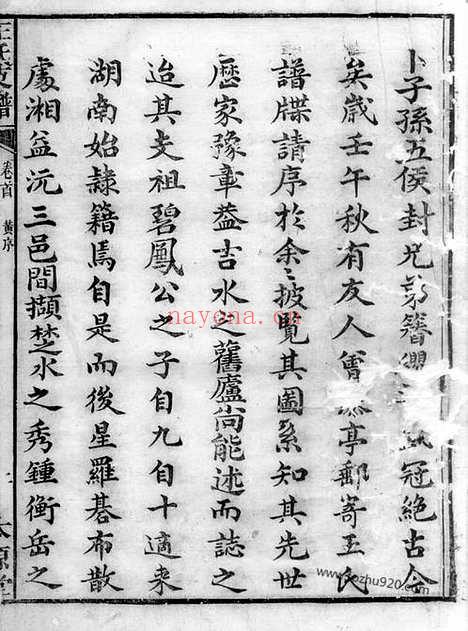 卜子孫五侯封兄弟簪纓冠絕古今
矣歲壬午秋有友人曾亭郵寄王氏
譜牒請序於余〻披覽其圖系知其先世
歷家豫章葢吉水之舊廬尚能述而誌之
迨其支祖碧鳳公之子自九自十適來
湖南始隸籍焉自是而後星羅碁布散
處湘益沅三邑間擷楚水之秀鍾衡岳之
王氏支譜
卷首
黃序
太原堂
nayona.cn
kozhu920.com